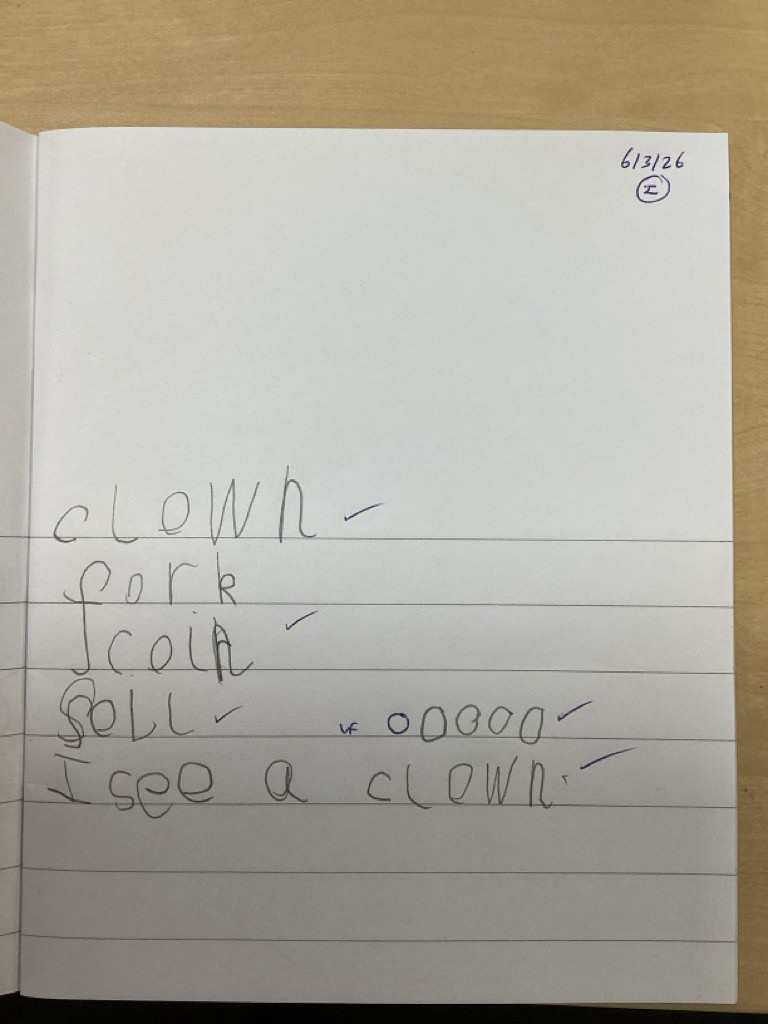 6/3/26
I
clown ✓
fork
coin ✓
sell ✓ VF o0000 ✓
I see a clown. ✓